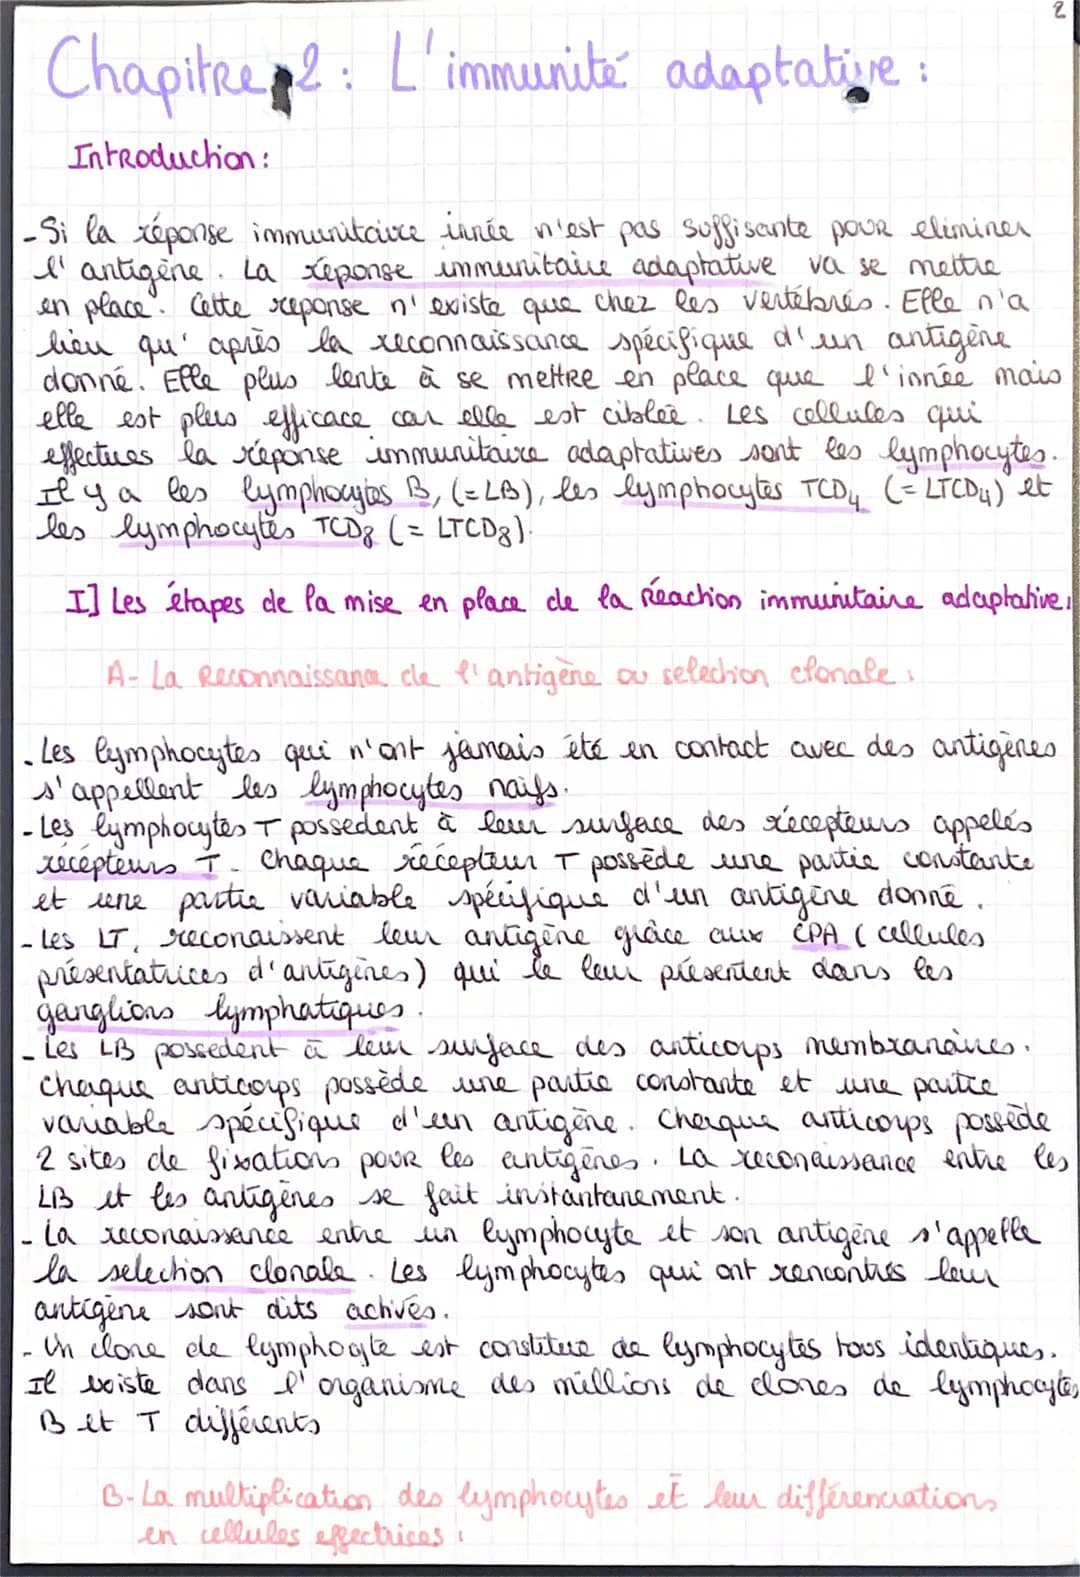 2
Chapitre 2 : L'immunité adaptative :
Introduction :
- Si la réponse immunitaire innée n'est pas suffisante pour eliminer
l'antigène. La réponse immunitaire adaptative va se mettre
en place. Cette reponse n'existe que chez les vertébrés. Elle n'a
lieu qu'après la reconnaissance spécifique d'un antigène
donné. Elle plus lente à se mettre en place que l'innée mais
elle est plus efficace car elle est ciblée. Les cellules qui
effectues la réponse immunitaire adaptatives sont les lymphocytes.
Il y a les lymphocytes B, (=LB), les lymphocytes TCD4 (=LTCD4) et
les lymphocytes TCD8 (= LTCD8).
I] Les étapes de la mise en place de la Réaction immunitaire adaptative :
A- La Reconnaissance de l'antigène ou selection clonale :
- Les lymphocytes qui n'ont jamais été en contact avec des antigènes
s'appellent les lymphocytes naïfs.
- Les lymphocytes T possedent à leur surface des récepteurs appelés
récépteurs T. Chaque récepteur T possède une partie constante
et une partie variable spécifique d'un antigène donné.
- Les LT, reconaissent leur antigène grâce aux CPA (cellules
présentatrices d'antigènes) qui le leur présentent dans les
ganglions lymphatiques.
- Les LB possedent à leur surface des anticorps membranaires.
Chaque anticorps possède une partie constante et une partie
variable spécifique d'un antigène. Chaque anticorps possède
2 sites de fixations pour les antigènes. La reconaissance entre les
LB et les antigènes se fait instantanement.
- La reconaissance entre un lymphocyte et son antigène s'appelle
la selection clonale. Les lymphocytes qui ont rencontrés leur
antigène sont dits activés.
- Un clone de lymphocyte est constitué de lymphocytes tous identiques.
Il existe dans l'organisme des millions de clones de lymphocytes
B et T différents
B- La multiplication des lymphocytes et leur différenciations
en cellules effectrices :